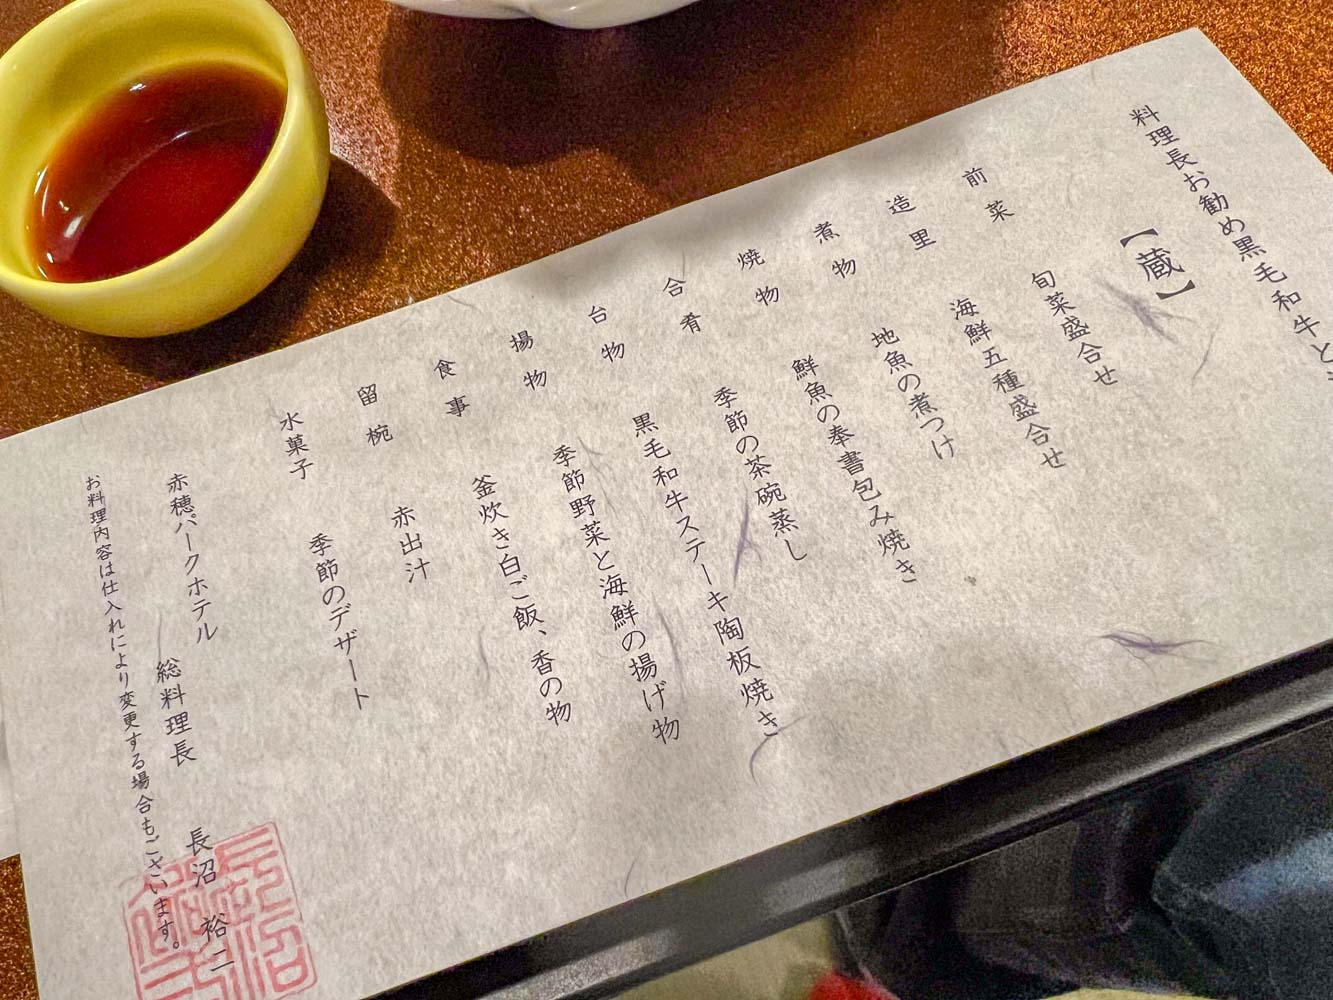 料理長お勧め黒毛和牛と
【蔵】
前菜 旬菜盛合せ
造里 海鮮五種盛合せ
煮物 地魚の煮つけ
焼物 鮮魚の奉書包み焼き
合肴 季節の茶碗蒸し
台物 黒毛和牛ステーキ陶板焼き
揚物 季節野菜と海鮮の揚げ物
食事 釜炊き白ご飯、香の物
留椀 赤出汁
水菓子 季節のデザート
赤穂パークホテル 総料理長 長沼 裕二
お料理内容は仕入れにより変更する場合もございます。